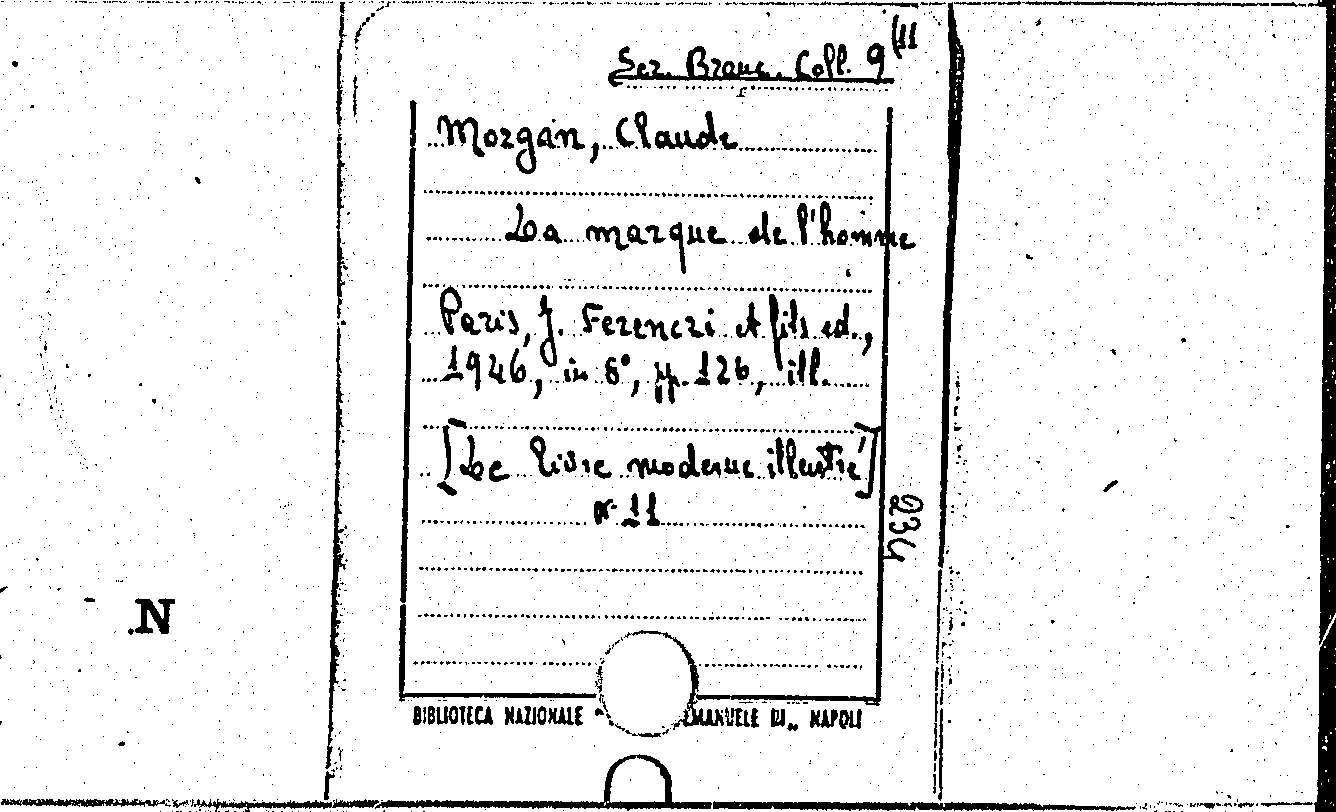 Ser. Branc. Coll. 9 (11
Morgan, Claude
La marque de l'homme
Paris, J. Ferenczi et fils ed.,
1946, in 8°, pp. 126, ill.
[Le livre moderne illustré]
n. 11
234
.N
BIBLIOTECA NAZIONALE " EMANUELE III„ NAPOLI